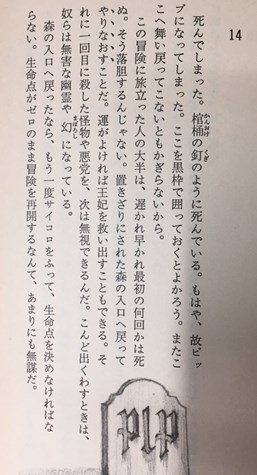 14
死んでしまった。棺桶の釘のように死んでいる。もはや、故ピッ
プになってしまった。ここを黒枠で囲っておくとよかろう。またこ
こへ舞い戻ってこないともかぎらないから。
この冒険に旅立った人の大半は、遅かれ早かれ最初の何回かは死
ぬ。そう落胆するんじゃない。置きざりにされた森の入口へ戻って
やりなおすことだ。運がよければ王妃を救い出すこともできる。そ
れに一回目に殺した怪物や悪党を、次は無視できるんだ。こんど出くわすときは、
奴らは無害な幽霊や幻になっている。
森の入口へ戻ったなら、もう一度サイコロをふって、生命点を決めなければな
らない。生命点がゼロのまま冒険を再開するなんて、あまりにも無謀だ。
PIP